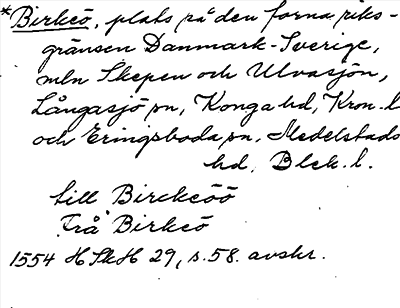 *Birkeö, plats på den forna riks-
gränsen Danmark-Sverige,
mln Skepen och Ulvasjön,
Långasjö sn, Konga hd, Kron. l
och Eringsboda sn, Medelstads
hd, Blek. l.
till Birckeöö
Frå Birkeö
1554 HSkH 29, s. 58. avskr.